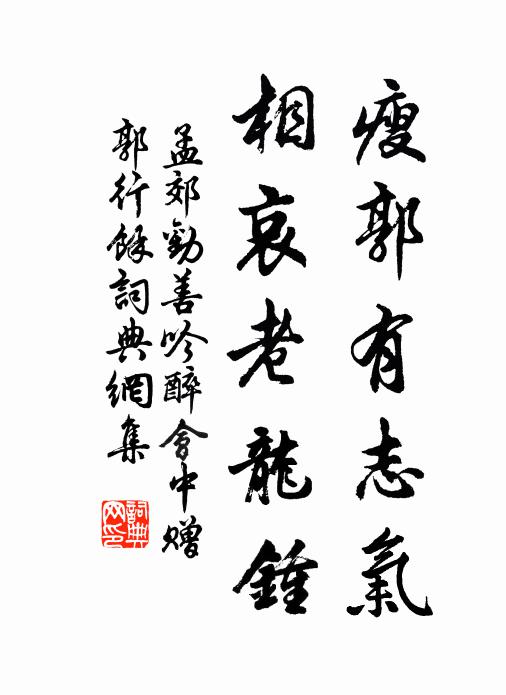 瘦郭有志氣
相哀老龍鍾
孟郊勸善吟醉會中贈
郭行餘詞典網集
詞典
网印